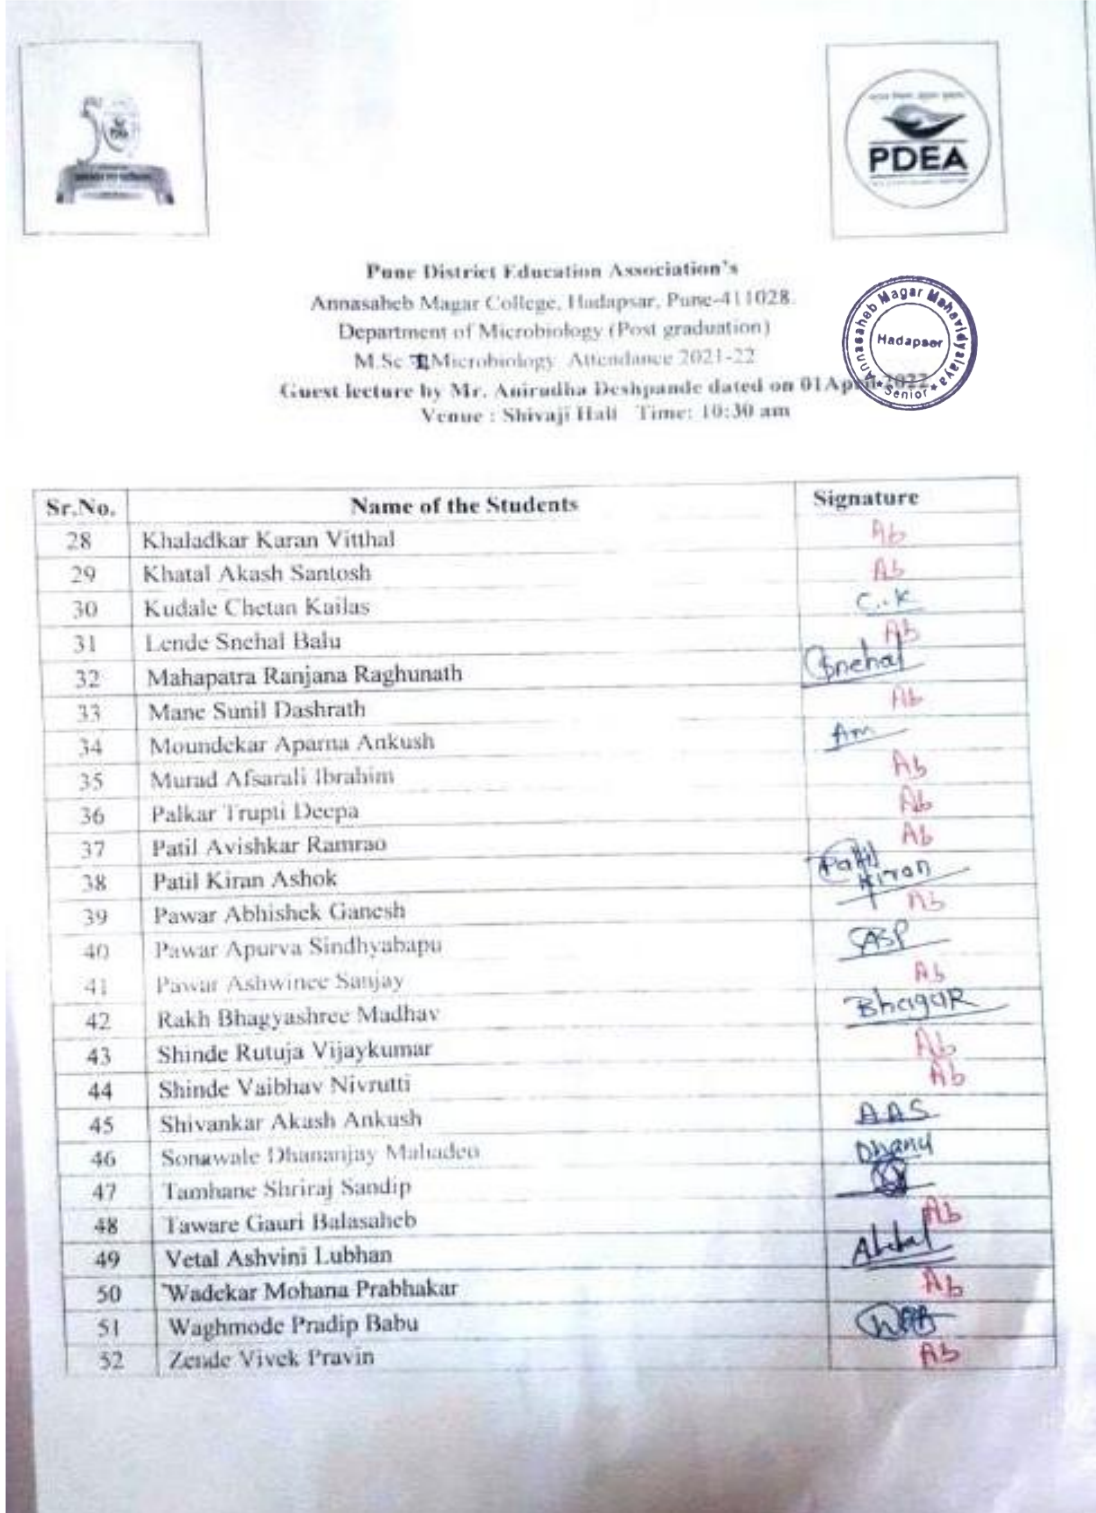 50
PDEA
PDEA
Pune District Education Association's
Annasaheb Magar College, Hadapsar, Pune-411028.
Department of Microbiology (Post graduation)
M.Sc II Microbiology Attendance 2021-22
Guest lecture by Mr. Anirudha Deshpande dated on 01April 2022
Venue : Shivaji Hall Time: 10:30 am
Annasaheb Magar Mahavidyalaya
Hadapser
★ Senior ★
Sr.No. Name of the Students Signature
28 Khaladkar Karan Vitthal Ab
29 Khatal Akash Santosh Ab
30 Kudale Chetan Kailas C.K
31 Lende Snehal Balu Ab
32 Mahapatra Ranjana Raghunath Snehal
33 Mane Sunil Dashrath Ab
34 Moundekar Aparna Ankush Am
35 Murad Afsarali Ibrahim Ab
36 Palkar Trupti Deepa Ab
37 Patil Avishkar Ramrao Ab
38 Patil Kiran Ashok Patil Kiran
39 Pawar Abhishek Ganesh Ab
40 Pawar Apurva Sindhyabapu ASP
41 Pawar Ashwinee Sanjay Ab
42 Rakh Bhagyashree Madhav BhagaR
43 Shinde Rutuja Vijaykumar Ab
44 Shinde Vaibhav Nivrutti Ab
45 Shivankar Akash Ankush AAS
46 Sonawale Dhananjay Mahadeo Dhanu
47 Tamhane Shriraj Sandip
48 Taware Gauri Balasaheb Ab
49 Vetal Ashvini Lubhan
50 Wadekar Mohana Prabhakar Ab
51 Waghmode Pradip Babu
52 Zende Vivek Pravin Ab